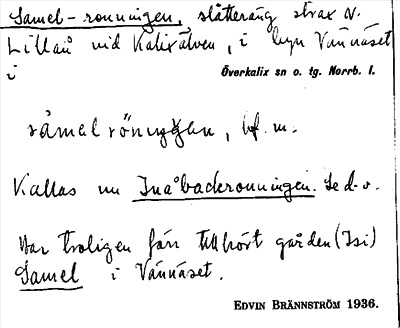 Samel-rönningen, slåtteräng strax v.
Lillån vid Kalixälven, i byn Vännäset
i Överkalix sn o. tg. Norrb. l.
såmelröningen, bf. m.
Kallas nu Inåbäckrönningen. Se d. o.
Har troligen förr tillhört gården (Isi)
Samel i Vännäset.
EDVIN BRÄNNSTRÖM 1936.